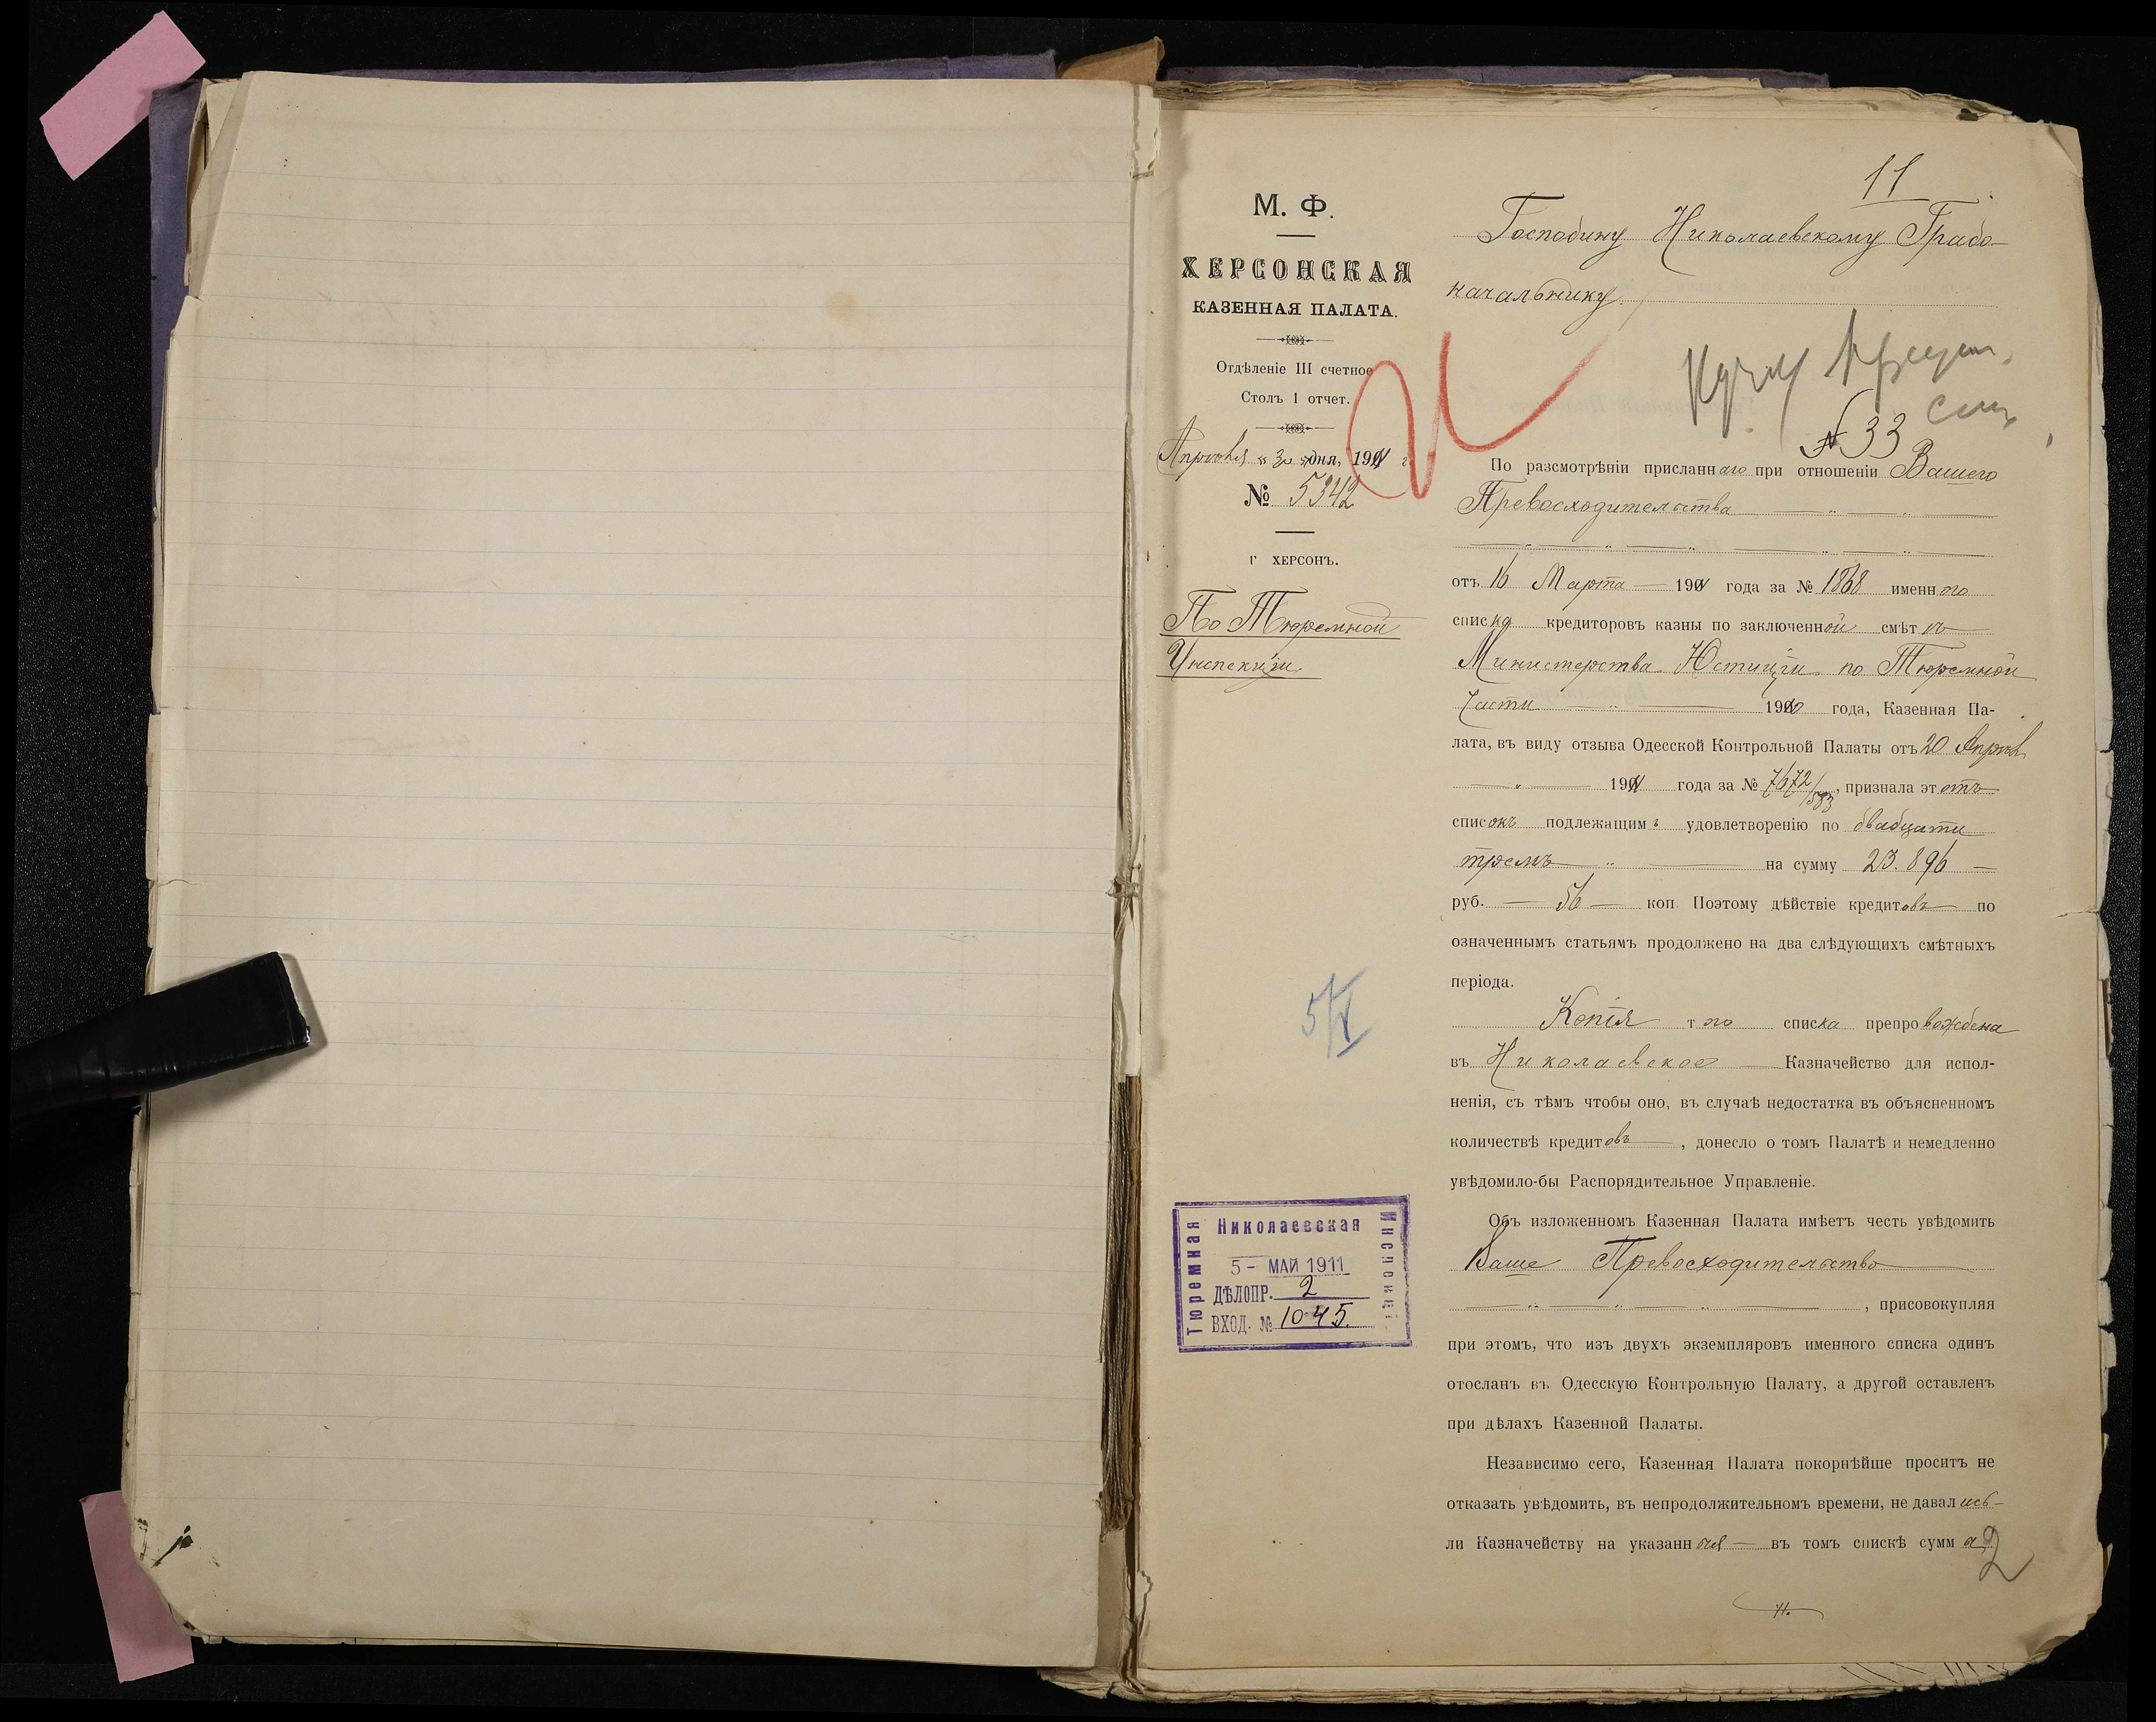 11
М. Ф.
ХЕРСОНСКАЯ
КАЗЕННАЯ ПАЛАТА.
Отдѣленіе III счетное
Столъ 1 отчет.
Апрѣля « 30 » дня, 1911 г.
№ 5342
г ХЕРСОНЪ.
По Тюремной
Инспекціи.
5/V
Тюремная
Николаевская
Инспекція
5 - МАЙ 1911
ДѢЛОПР. 2
ВХОД. № 1045.
Господину Николаевскому Градо-
начальнику.
№ 33
По разсмотрѣніи присланнаго при отношеніи Вашего
Превосходительства
отъ 16 Марта 1911 года за № 1868 именного
списка кредиторовъ казны по заключенной смѣтѣ
Министерства Юстиціи по Тюремной
Части 1910 года, Казенная Па-
лата, въ виду отзыва Одесской Контрольной Палаты отъ 20 Апрѣля
1911 года за № 7672/583, признала этотъ
списокъ подлежащимъ удовлетворенію по двадцати
тремъ на сумму 23.896
руб. 56 коп. Поэтому дѣйствіе кредитовъ по
означеннымъ статьямъ продолжено на два слѣдующихъ смѣтныхъ
періода.
Копія того списка препровождена
въ Николаевское Казначейство для испол-
ненія, съ тѣмъ чтобы оно, въ случаѣ недостатка въ объясненномъ
количествѣ кредитовъ, донесло о томъ Палатѣ и немедленно
увѣдомило-бы Распорядительное Управленіе.
Объ изложенномъ Казенная Палата имѣетъ честь увѣдомить
Ваше Превосходительство
, присовокупляя
при этомъ, что изъ двухъ экземпляровъ именного списка одинъ
отосланъ въ Одесскую Контрольную Палату, а другой оставленъ
при дѣлахъ Казенной Палаты.
Независимо сего, Казенная Палата покорнѣйше проситъ не
отказать увѣдомить, въ непродолжительномъ времени, не давались-
ли Казначейству на указанныя въ томъ спискѣ суммы
2